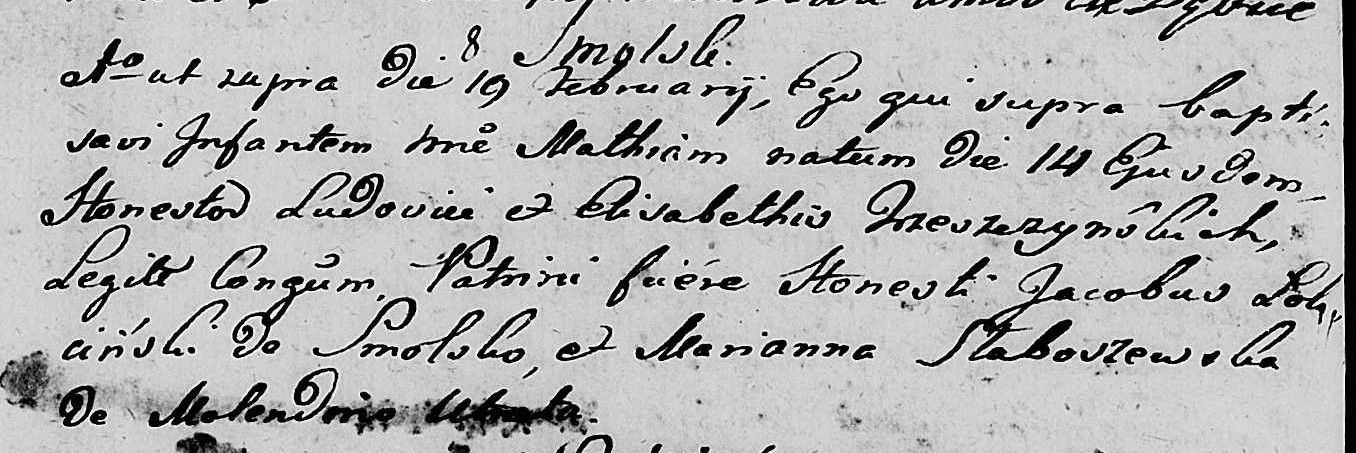 8 Smolsk.
Ao ut supra Die 19 Februarij, Ego qui supra bapti-
savi Infantem nne Mathiam natum Die 14 Ejusdem
Honestor Ludovici et Elisabethis Trzeszczynskich,
Legitt Congum, Patrini fuere Honesti Jacobus
ciński De Smolsko, et Marianna Staboszewska
De Molendino Utrata.